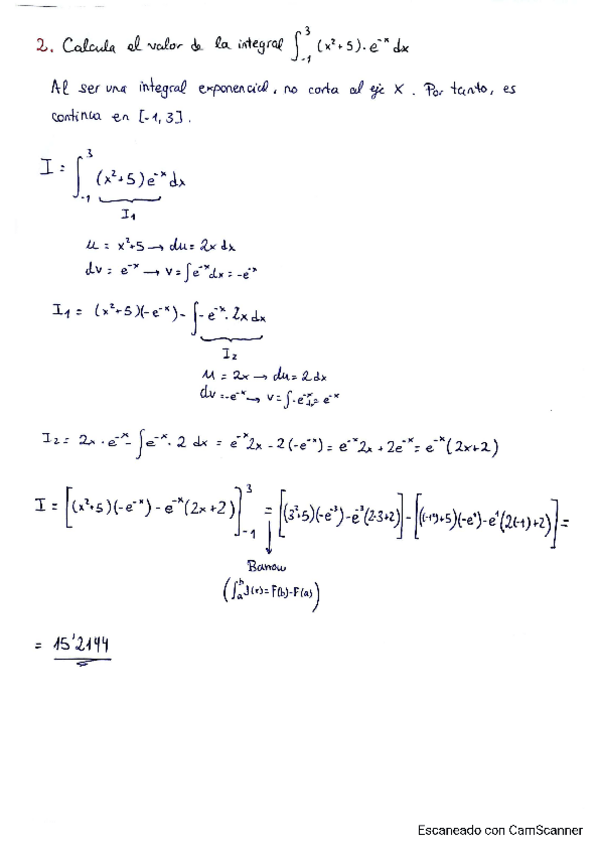 2. Calcula el valor de la integral ∫₋₁³ (x²+5)·e⁻ˣ dx
Al ser una integral exponencial, no corta al eje X. Por tanto, es
continua en [-1, 3].
I = ∫₋₁³ (x²+5)e⁻ˣ dx
I₁
u = x²+5 → du = 2x dx
dv = e⁻ˣ → v = ∫e⁻ˣ dx = -e⁻ˣ
I₁ = (x²+5)(-e⁻ˣ) - ∫-e⁻ˣ·2x dx
I₂
u = 2x → du = 2 dx
dv = -e⁻ˣ → v = ∫-e⁻ˣ = e⁻ˣ
I₂ = 2x·e⁻ˣ - ∫e⁻ˣ·2 dx = e⁻ˣ2x - 2(-e⁻ˣ) = e⁻ˣ2x + 2e⁻ˣ = e⁻ˣ(2x+2)
I = [(x²+5)(-e⁻ˣ) - e⁻ˣ(2x+2)]₋₁³ = [(3²+5)(-e⁻³) - e⁻³(2·3+2)] - [((-1)²+5)(-e¹) - e¹(2(-1)+2)] =
Barrow
(∫ₐᵇ f(x) = F(b) - F(a))
= 15'2144
Escaneado con CamScanner